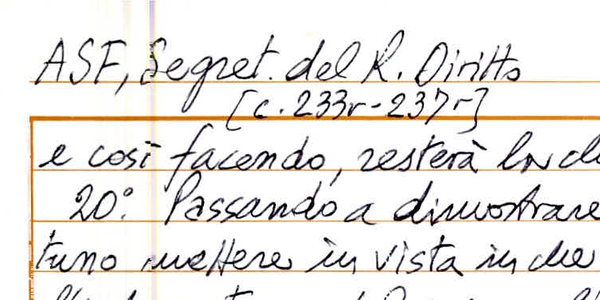 ASF, Segret. del R. Diritto
[c. 233r-237r]
e così facendo, resterà
20° Passando a dimostrare
tuno mettere in vista in che